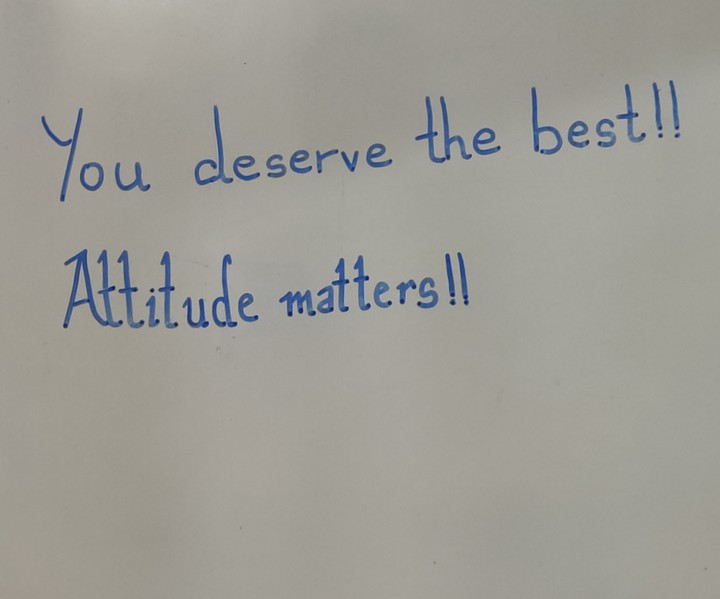 You deserve the best!!
Attitude matters!!